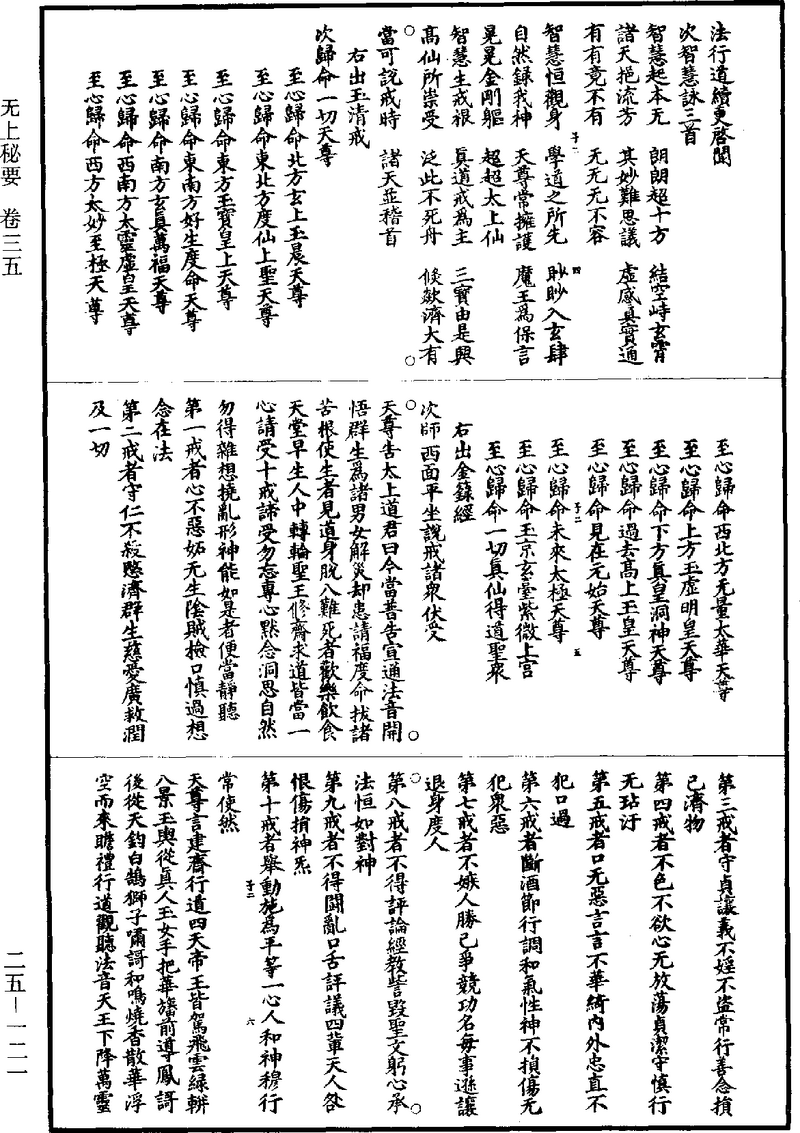 无上秘要 卷三五
法行道續更啓聞
次智慧詠三首
智慧起本无 朗朗超十方 結空峙玄霄
諸天挹流芳 其妙難思議 虛感真實通
有有竟不有 无无无不容
智慧恒觀身 學道之所先 眇眇入玄肆
自然錄我神 天尊常擁護 魔王爲保言
晃晃金剛軀 超超太上仙
智慧生戒根 眞道戒爲主 三寶由是興
高仙所崇受 泛此不死舟 倏欻濟大有
當可說戒時 諸天並稽首
右出玉清戒
次歸命一切天尊
至心歸命北方玄上玉晨天尊
至心歸命東北方度仙上聖天尊
至心歸命東方玉寶皇上天尊
至心歸命東南方好生度命天尊
至心歸命南方玄真萬福天尊
至心歸命西南方太靈虛皇天尊
至心歸命西方太妙至極天尊
至心歸命西北方无量太華天尊
至心歸命上方玉虛明皇天尊
至心歸命下方真皇洞神天尊
至心歸命過去高上玉皇天尊
至心歸命見在元始天尊
至心歸命未來太極天尊
至心歸命玉京玄臺紫微上宮
至心歸命一切真仙得道聖衆
右出金籙經
次師西面平坐說戒諸衆伏受
天尊告太上道君曰今當普告宣通法音開
悟群生爲諸男女解災却患請福度命拔諸
苦根使生者見道身脫八難死者歡樂飲食
天堂早生人中轉輪聖王修齋求道皆當一
心請受十戒諦受勿忘專心默念洞思自然
勿得雜想撓亂形神能如是者便當靜聽
第一戒者心不惡妬无生陰賊檢口慎過想
念在法
第二戒者守仁不殺愍濟群生慈愛廣救潤
及一切
第三戒者守貞讓義不婬不盜常行善念損
己濟物
第四戒者不色不欲心无放蕩貞潔守慎行
无玷汙
第五戒者口无惡言言不華綺內外忠直不
犯口過
第六戒者斷酒節行調和氣性神不損傷无
犯衆惡
第七戒者不嫉人勝己爭競功名每事遜讓
退身度人
第八戒者不得評論經教訾毀聖文躬心承
法恒如對神
第九戒者不得鬪亂口舌評議四輩天人咎
恨傷損神炁
第十戒者舉動施爲平等一心人和神穆行
常使然
天尊言建齋行道四天帝王皆駕飛雲綠軿
八景玉輿從真人玉女手把華旛前導鳳謌
後從天鈞白鵠獅子嘯謌和鳴燒香散華浮
空而來瞻禮行道觀聽法音天王下降萬靈
二五－一二一